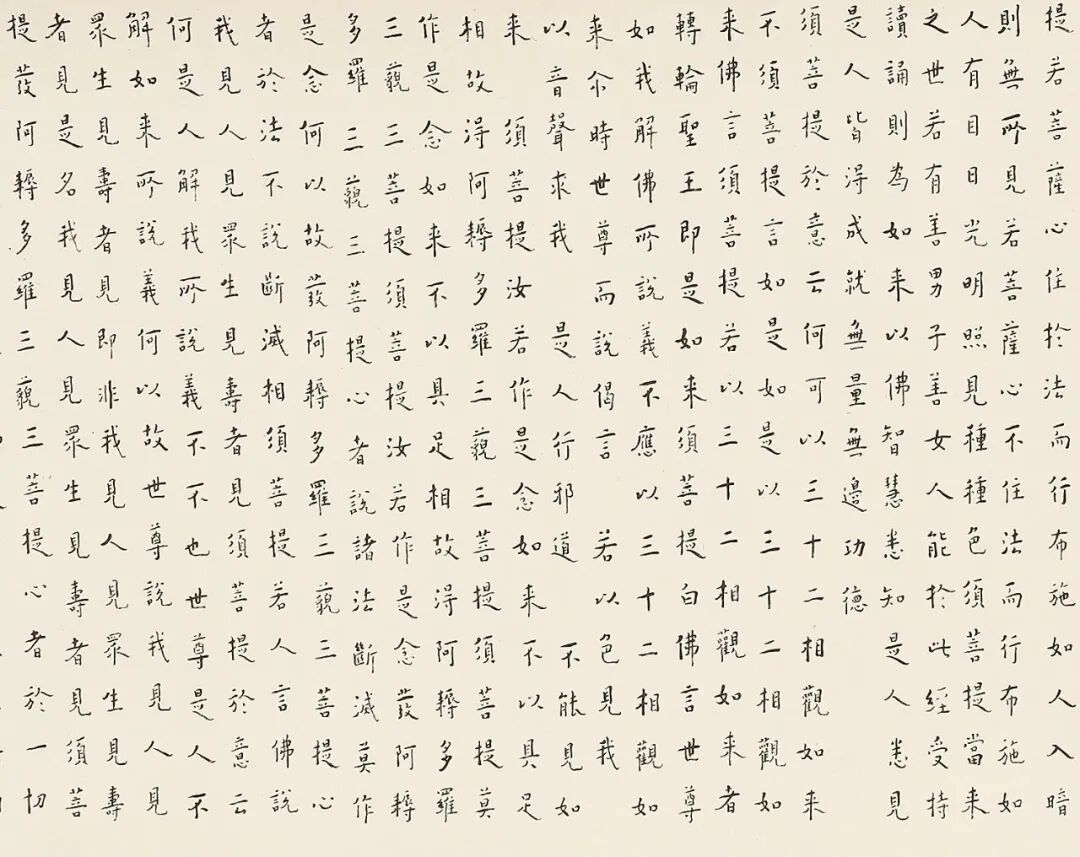 提若菩薩心住於法而行布施如人入暗
則無所見若菩薩心不住法而行布施如
人有目日光明照見種種色須菩提當来
之世若有善男子善女人能於此經受持
讀誦則為如来以佛智慧悉知是人悉見
是人皆得成就無量無邊功德
須菩提於意云何可以三十二相觀如来
不須菩提言如是如是以三十二相觀如
来佛言須菩提若以三十二相觀如来者
轉輪聖王即是如来須菩提白佛言世尊
如我解佛所說義不應以三十二相觀如
来尒時世尊而說偈言 若以色見我
以音聲求我 是人行邪道 不能見如
来 須菩提汝若作是念如来不以具足
相故得阿耨多羅三藐三菩提須菩提莫
作是念如来不以具足相故得阿耨多羅
三藐三菩提須菩提汝若作是念發阿耨
多羅三藐三菩提心者說諸法斷滅莫作
是念何以故發阿耨多羅三藐三菩提心
者於法不說斷滅相須菩提若人言佛說
我見人見眾生見壽者見須菩提於意云
何是人解我所說義不不也世尊是人不
解如来所說義何以故世尊說我見人見
眾生見壽者見即非我見人見眾生見壽
者見是名我見人見眾生見壽者見須菩
提發阿耨多羅三藐三菩提心者於一切